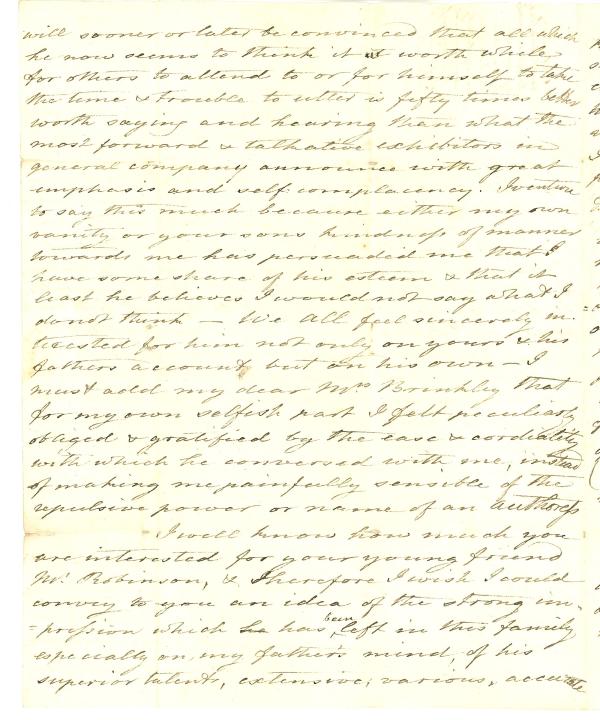 will sooner or later be convinced that all which
he now seems to think it worth while
for others to attend to or for himself to take
the time & trouble to utter is fifty times better
worth saying and hearing than what the
most forward & talkative exhibitors in
general company announce with great
emphasis and self complacency. I venture
to say this much because either my own
vanity or your sons kindness of manner
towards me has persuaded me that I
have some share of his esteem & that at
least he believes I would not say what I
do not think – We all feel sincerely in-
terested for him not only on yours & his
fathers account but on his own – I
must add my dear Mrs Brinkley that
for my own selfish part I felt peculiarly
obliged & gratified by the ease & cordiality
with which he conversed with me, instead
of making me painfully sensible of the
repulsive power or name of an authoress
I well know how much you
are interested for your young friend
Mr. Robinson, & therefore I wish I could
convey to you an idea of the strong im-
=pression which has been left in this family
especially on my father's mind, of his
superior talents, extensive, various, accurate